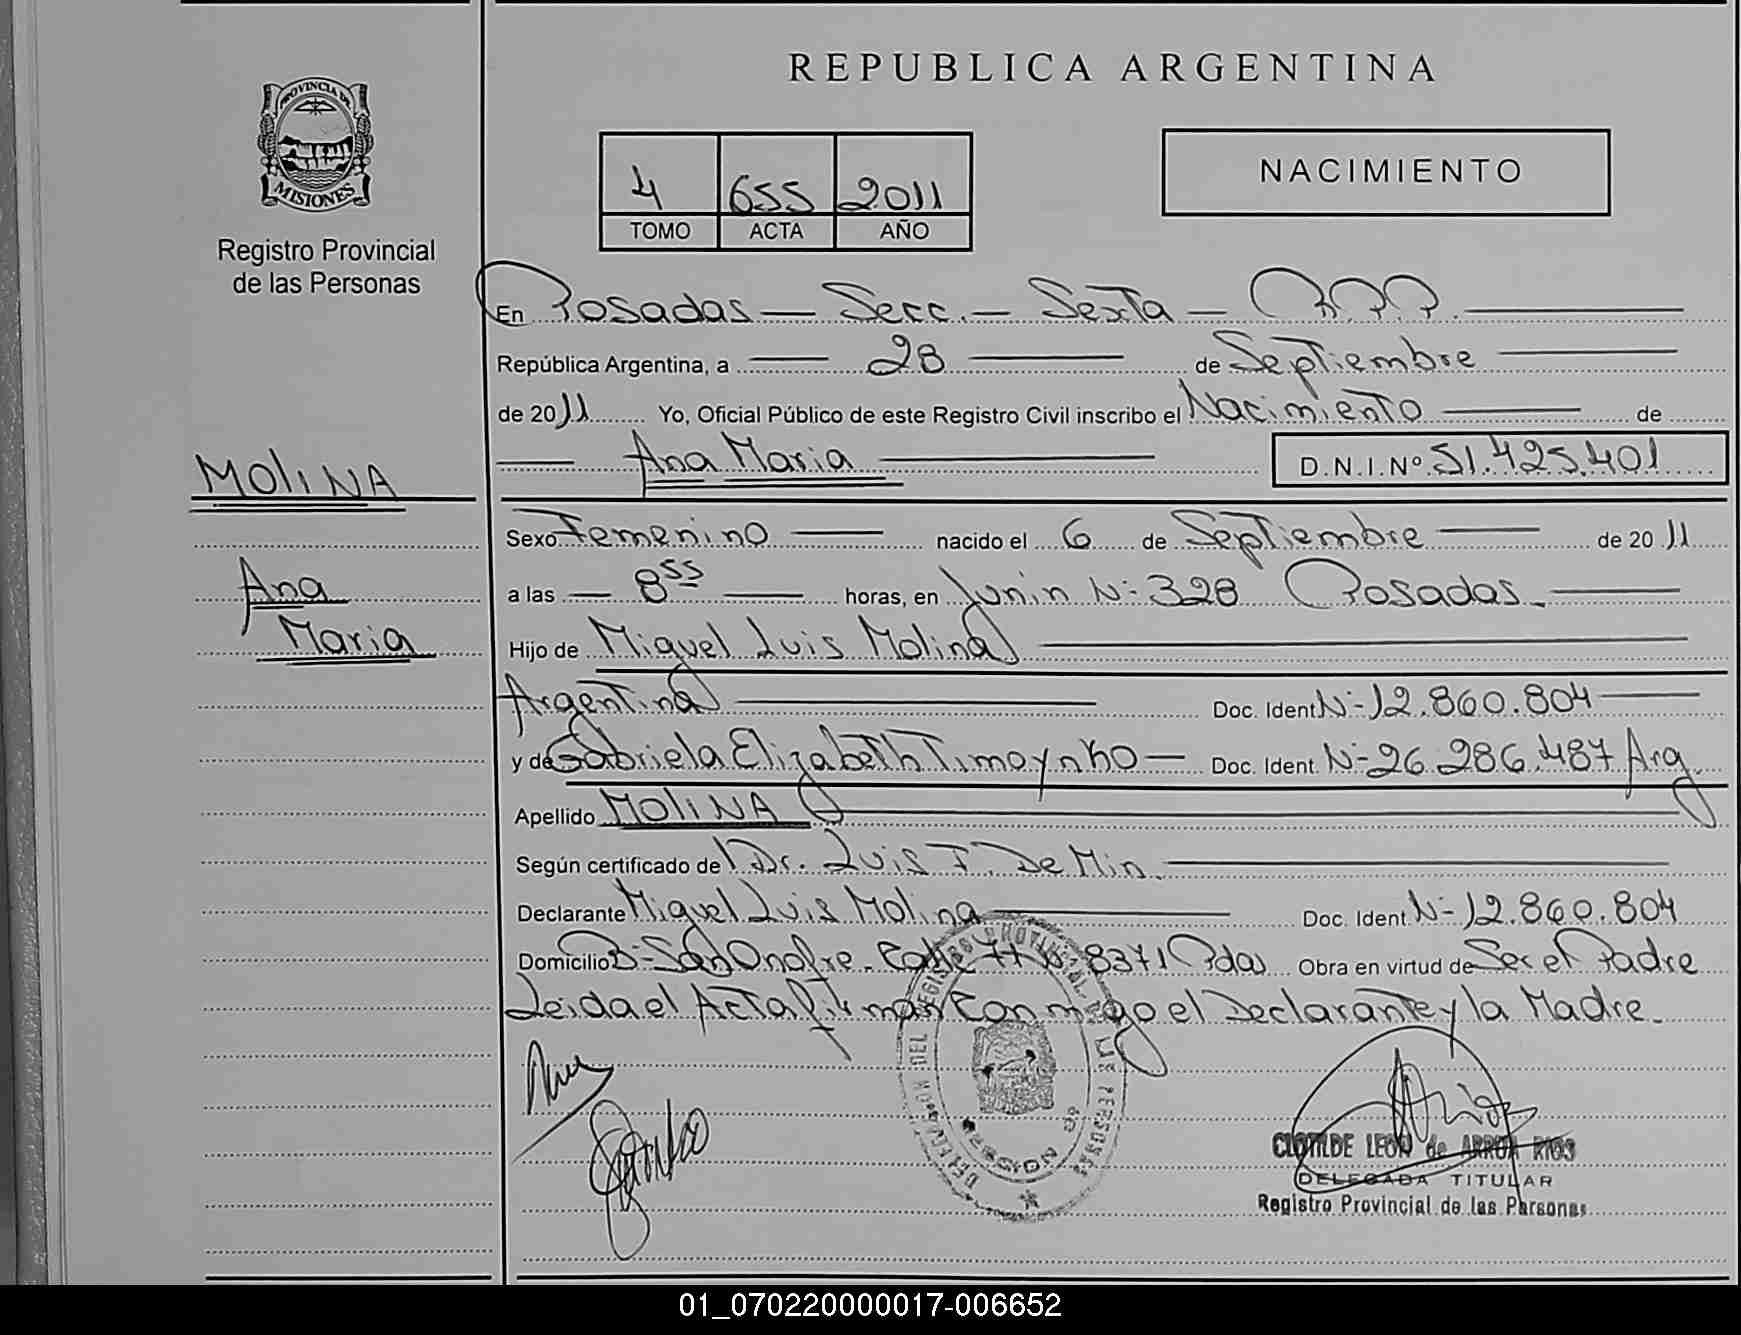 REPUBLICA ARGENTINA
PROVINCIA DE
MISIONES
Registro Provincial
de las Personas
4 655 2011
TOMO ACTA AÑO
NACIMIENTO
En Posadas — Secc. — Sexta — R.P.P.
República Argentina, a — 28 — de Septiembre —
de 2011 Yo, Oficial Público de este Registro Civil inscribo el Nacimiento — de
— Ana Maria —
D.N.I.Nº 51.425.401
MOLINA
Ana
Maria
Sexo Femenino — nacido el 6 de Septiembre — de 2011
a las — 8 55 — horas, en Junin N- 328 Posadas. —
Hijo de Miguel Luis Molina —
Argentina — Doc. Ident N- 12.860.804 —
y de Gabriela Elizabeth Timoynko — Doc. Ident. N- 26.286.487 Arg.
Apellido MOLINA —
Según certificado de Dr. Luis F. De Min. —
Declarante Miguel Luis Molina — Doc. Ident. N- 12.860.804
Domicilio B- San Onofre. Calle 77 N- 8371 Pdas Obra en virtud de Ser el Padre
Leida el Acta firman Conmigo el Declarante y la Madre.
DELEGACION DEL REGISTRO PROVINCIAL DE LAS PERSONAS
CLOTILDE LEON de ARRUA RIOS
DELEGADA TITULAR
Registro Provincial de las Personas
01_070220000017-006652